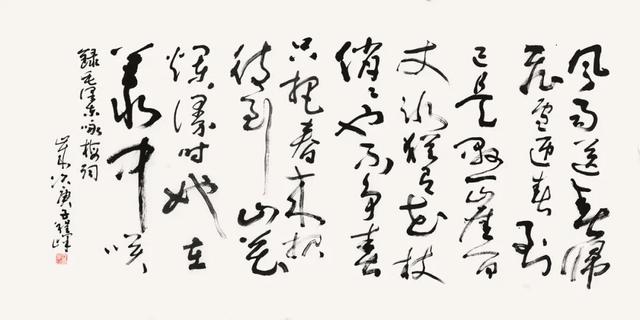 风雨送春归
飞雪迎春到
已是悬崖百
丈冰犹有花枝
俏〻也不争春
只把春来报
待到山花
烂漫时她在
丛中咲
録毛泽东咏梅词
岁次庚子